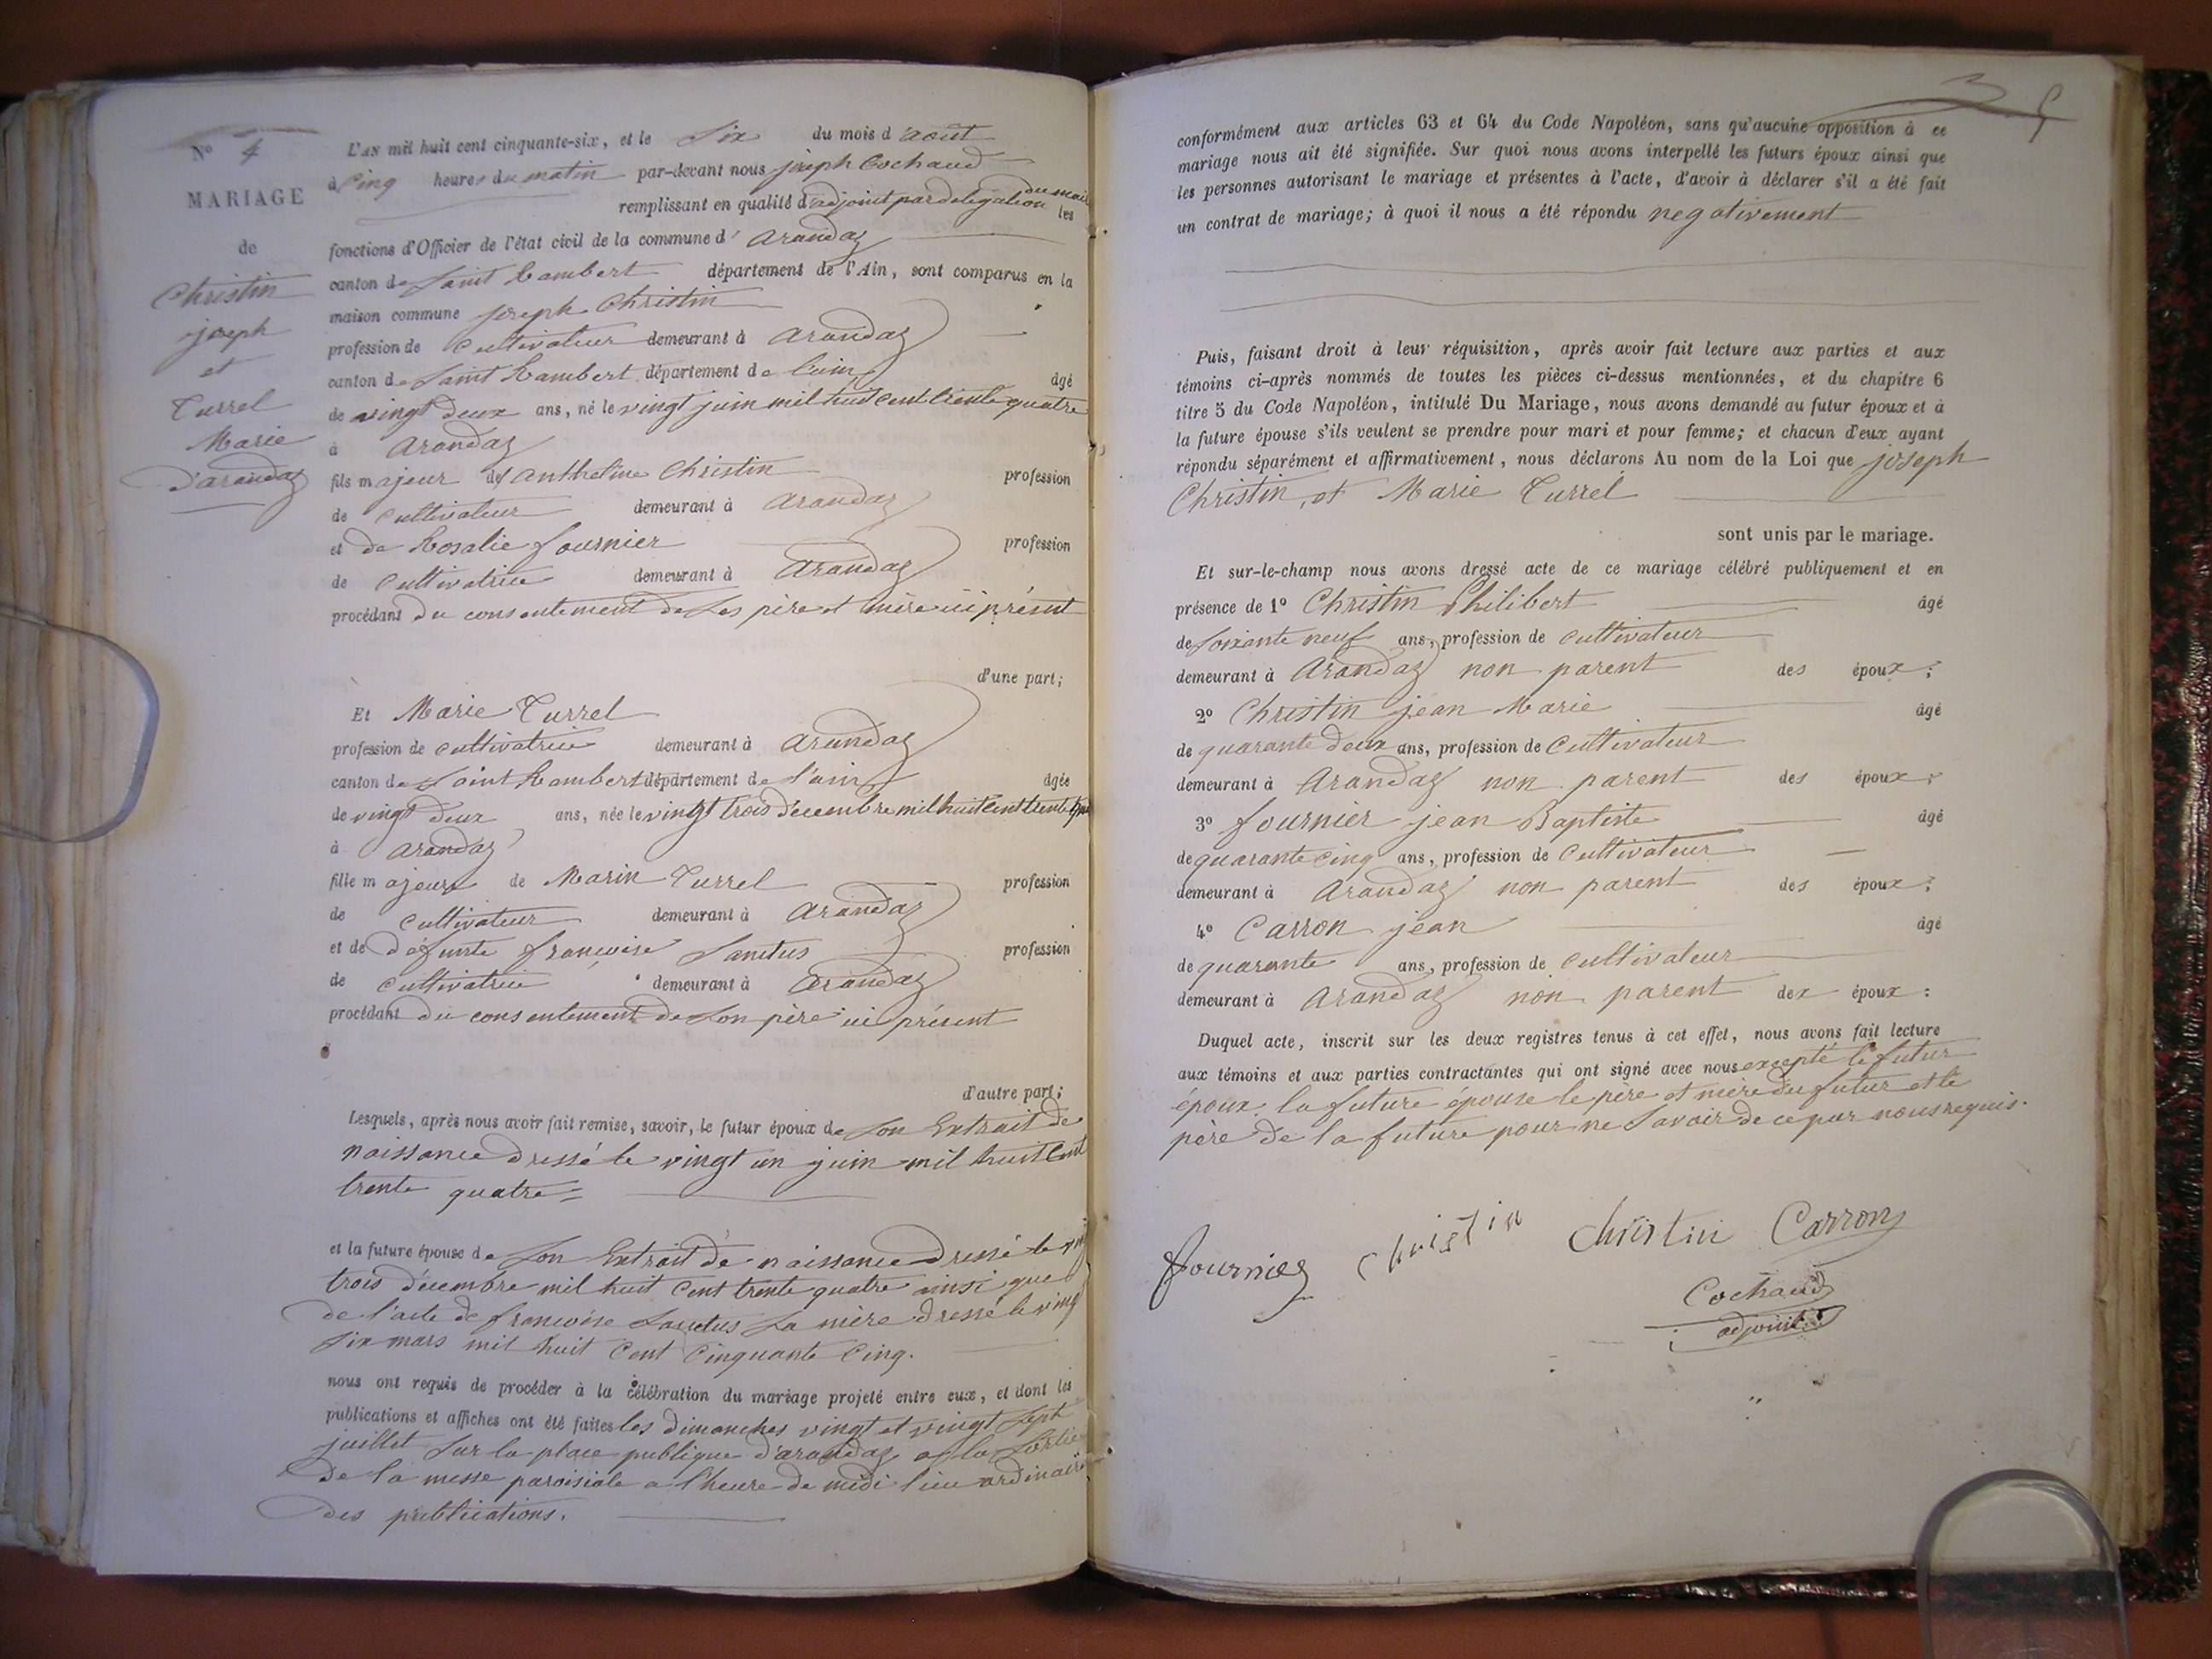 N° 4
MARIAGE
de
Christin
joseph
et
Turrel
Marie
D'arandaz
L'AN mil huit cent cinquante-six, et le Six du mois d'août
à Cinq heures du matin par-devant nous joseph Cochaud
remplissant en qualité d'adjoint par delegation du maire les
fonctions d'Officier de l'état civil de la commune d' Arandaz
canton de Saint Rambert département de l'Ain, sont comparus en la
maison commune joseph Christin
profession de Cultivateur demeurant à Arandaz
canton de Saint Rambert département de l'ain âgé
de vingt deux ans, né le vingt juin mil huit cent trente quatre
à Arandaz
fils majeur de Anthelme Christin profession
de Cultivateur demeurant à Arandaz
et de Rosalie fournier profession
de Cultivatrice demeurant à Arandaz
procédant du consentement de Ses père et mère ici présent
d'une part;
Et Marie Turrel
profession de cultivatrice demeurant à Arandaz
canton de Saint Rambert département de l'ain âgée
de vingt deux ans, née le vingt trois décembre mil huit cent trente
à Arandaz
fille majeure de Marin Turrel profession
de cultivateur demeurant à Arandaz
et de défunte françoise Sanctus profession
de cultivatrice demeurant à Arandaz
procédant du consentement de Son père ici présent
d'autre part;
Lesquels, après nous avoir fait remise, savoir, le futur époux de Son Extrait de
naissance dressé le vingt un juin mil huit Cent
trente quatre
et la future épouse de Son Extrait de naissance dressé le
trois décembre mil huit Cent trente quatre ainsi que
de l'acte de françoise Sanctus Sa mère dressé le vingt
Six mars mil huit Cent Cinquante Cinq.
nous ont requis de procéder à la célébration du mariage projeté entre eux, et dont les
publications et affiches ont été faites les dimanches vingt et vingt Sept
juillet Sur la place publique d'arandaz a la Sortie
de la messe paroisiale a l'heure de midi lieu ordinaire
des publications.
conformément aux articles 63 et 64 du Code Napoléon, sans qu'aucune opposition à ce
mariage nous ait été signifiée. Sur quoi nous avons interpellé les futurs époux ainsi que
les personnes autorisant le mariage et présentes à l'acte, d'avoir à déclarer s'il a été fait
un contrat de mariage; à quoi il nous a été répondu negativement
Puis, faisant droit à leur réquisition, après avoir fait lecture aux parties et aux
témoins ci-après nommés de toutes les pièces ci-dessus mentionnées, et du chapitre 6
titre 5 du Code Napoléon, intitulé Du Mariage, nous avons demandé au futur époux et à
la future épouse s'ils veulent se prendre pour mari et pour femme; et chacun d'eux ayant
répondu séparément et affirmativement, nous déclarons Au nom de la Loi que joseph
Christin, et Marie Turrel
sont unis par le mariage.
Et sur-le-champ nous avons dressé acte de ce mariage célébré publiquement et en
présence de 1° Christin Philibert âgé
de Soixante neuf ans, profession de cultivateur
demeurant à Arandaz non parent des époux;
2° Christin jean Marie âgé
de quarante deux ans, profession de Cultivateur
demeurant à Arandaz non parent des époux;
3° fournier jean Baptiste âgé
de quarante cinq ans, profession de Cultivateur
demeurant à Arandaz non parent des époux;
4° Carron jean âgé
de quarante ans, profession de cultivateur
demeurant à Arandaz non parent des époux:
Duquel acte, inscrit sur les deux registres tenus à cet effet, nous avons fait lecture
aux témoins et aux parties contractantes qui ont signé avec nous excepté le futur
époux, la future épouse le père et mère du futur et le
père de la future pour ne Savoir de ce par nous requis.
Fournier Christin Christin Carron
Cochaud
adjoint